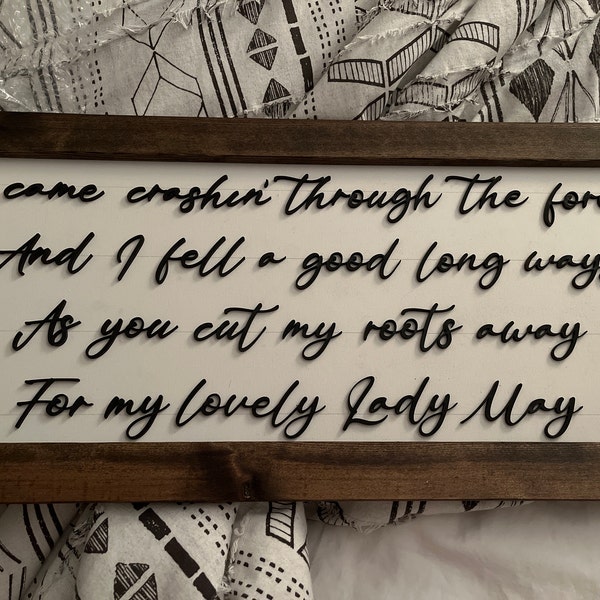 came crashin' through the
And I fell a good long ways
As you cut my roots away
For my lovely Lady May